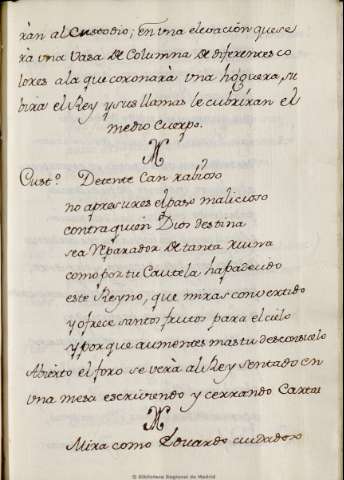 ràn al Custodio; En vna elevación que se
rà vna Vasa de Columna de diferentes co
lores a la que coronarà vna hoguera, su
birà el Rey y sus llamas le cubriràn el
medio Cuerpo.
Cust.º Detente Can rabioso
no apresures el paso malicioso
contra quien Dios destina
sea Reparador de tanta ruina
como por tu Cautela ha padecido
este Reyno, que miras convertido
y ofrece santos frutos para el cielo
y porque aumentes mas tu desconsuelo
Abierto el foro se verà al Rey sentado en
vna mesa escriviendo y cerrando Cartas
Mira como Eduardo cuidadoso
© Biblioteca Regional de Madrid